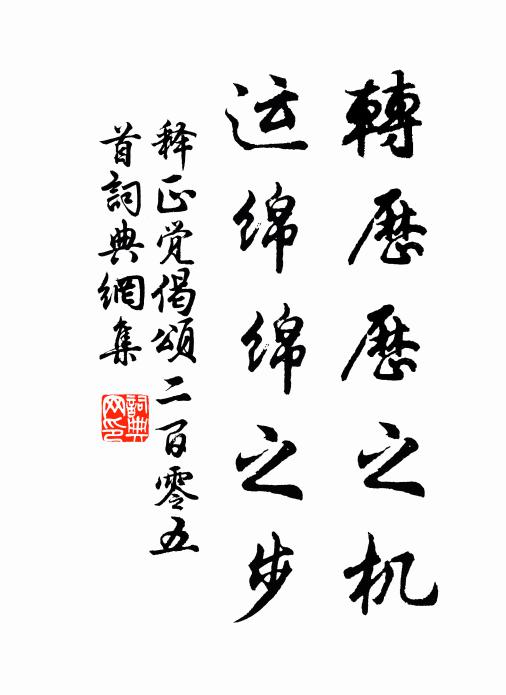 轉歷歷之机
运绵绵之步
释正觉偈頌二百零五
首詞典網集
詞典网印